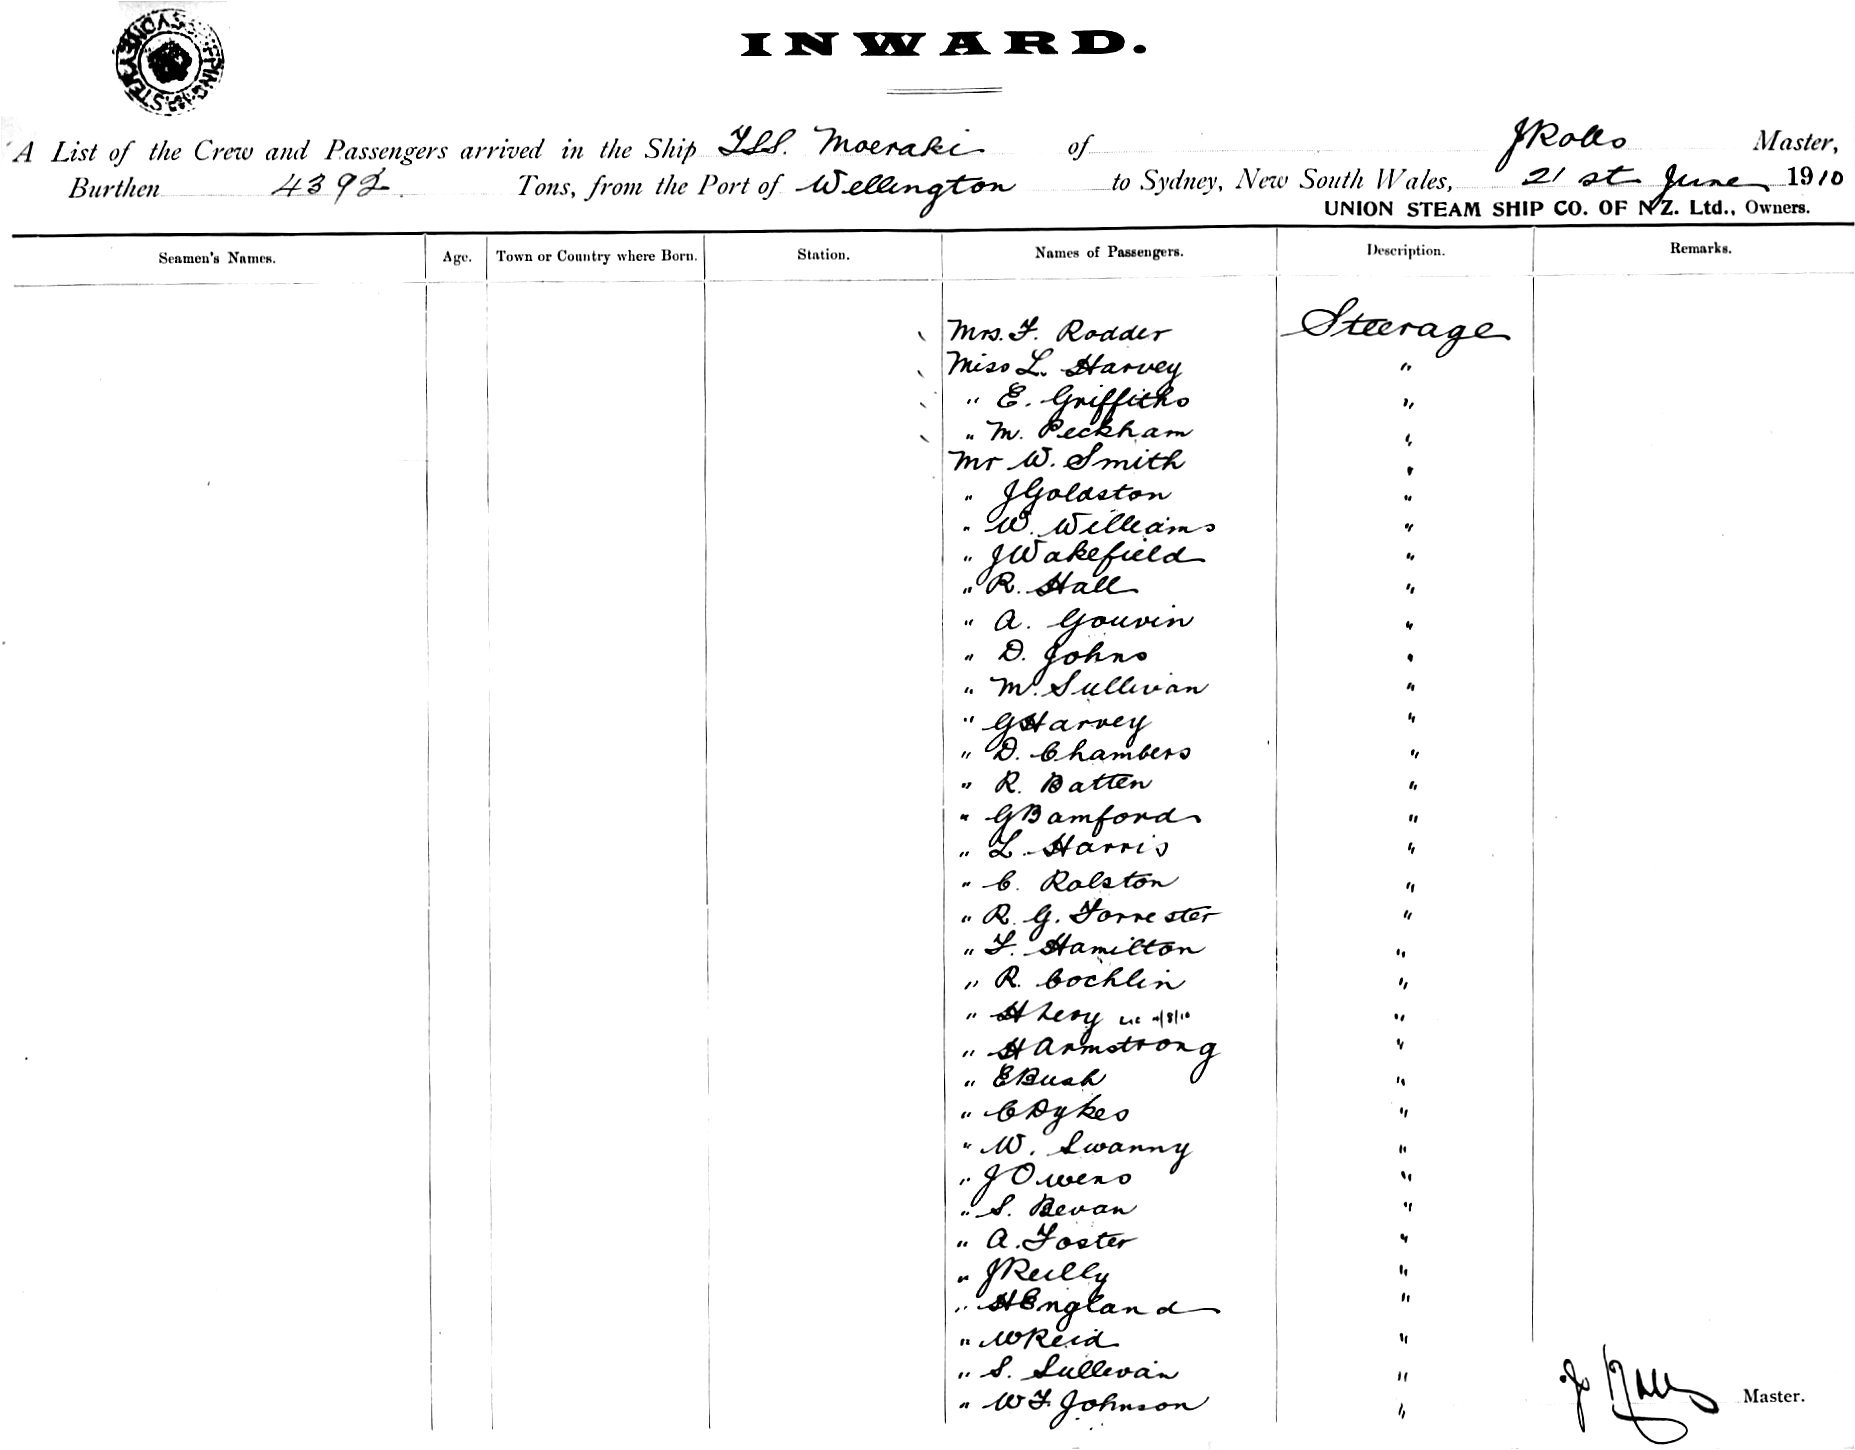 INWARD.
A List of the Crew and Passengers arrived in the Ship TSS. Moeraki of J Rolls Master,
Burthen 4392 Tons, from the Port of Wellington to Sydney, New South Wales, 21st June 1910
UNION STEAM SHIP CO. OF N.Z. Ltd., Owners.
Seamen's Names. Age. Town or Country where Born. Station. Names of Passengers. Description. Remarks.
Mrs. F. Rodder Steerage
Miss L. Harvey "
" E. Griffiths "
" M. Peckham "
Mr W. Smith "
" J Goldston "
" W. Williams "
" J Wakefield "
" R. Hall "
" A. Gouvin "
" D. Johns "
" M. Sullivan "
" G Harvey "
" D. Chambers "
" R. Batten "
" G Bamford "
" L. Harris "
" C. Ralston "
" R. G. Forrester "
" F. Hamilton "
" R. Cochlin "
" H Levy "
" H Armstrong "
" E Bush "
" C Dykes "
" W. Swanny "
" J Owens "
" S. Bevan "
" A. Foster "
" J Reilly "
" H England "
" W Reid "
" S. Sullivan "
" W F Johnson "
J Rolls Master.